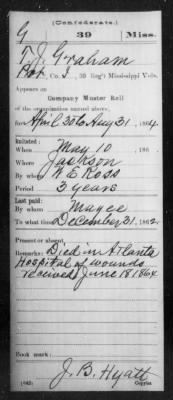 (Confederate.)
G 39 Miss.
T. J. Graham
Pvt, Co. I., 39 Reg't Mississippi Vols.
Appears on
Company Muster Roll
of the organization named above,
for April 30 to Aug 31, 1864.
Enlisted:
When May 10, 186
Where Jackson
By whom W E Ross
Period 3 years
Last paid:
By whom Magee
To what time December 31, 1862.
Present or absent
Remarks: Died in Atlanta
Hospital of wounds
received June 18 1864
Book mark:
J. B. Hyatt
(642) Copyist.